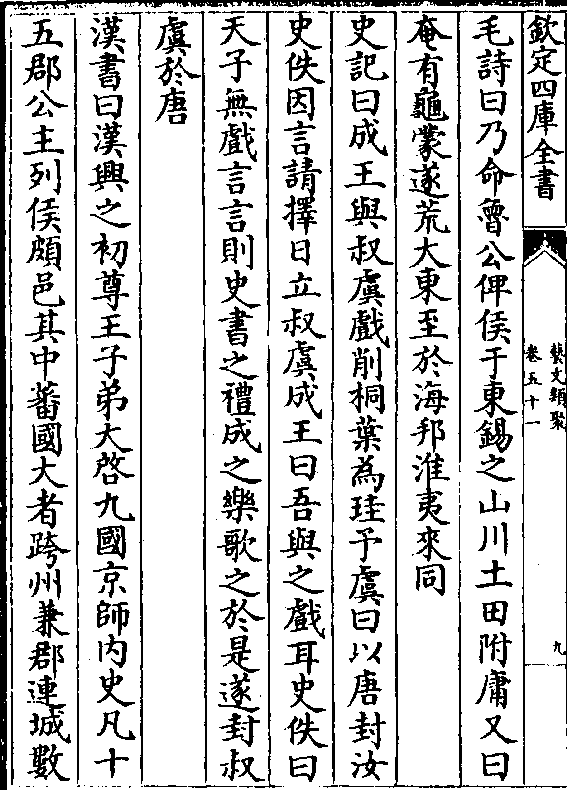 欽定四庫全書
藝文類聚
卷五十一
九
毛詩曰乃命魯公俾侯于東錫之山川土田附庸又曰
奄有龜蒙遂荒大東至於海邦淮夷來同
史記曰成王與叔虞戲削桐葉為珪予虞曰以唐封汝
史佚因言請擇日立叔虞成王曰吾與之戲耳史佚曰
天子無戲言言則史書之禮成之樂歌之於是遂封叔
虞於唐
漢書曰漢興之初尊王子弟大啓九國京師内史凡十
五郡公主列侯頗邑其中蕃國大者跨州兼郡連城數